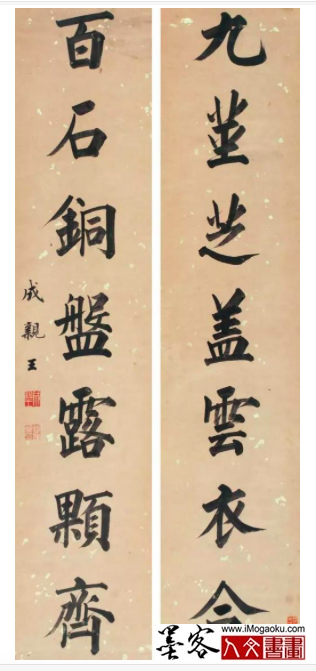 九莖芝盖雲衣
百石銅盤露顆齊
成親王
墨客
www.iMogaoku.com
人文書畫